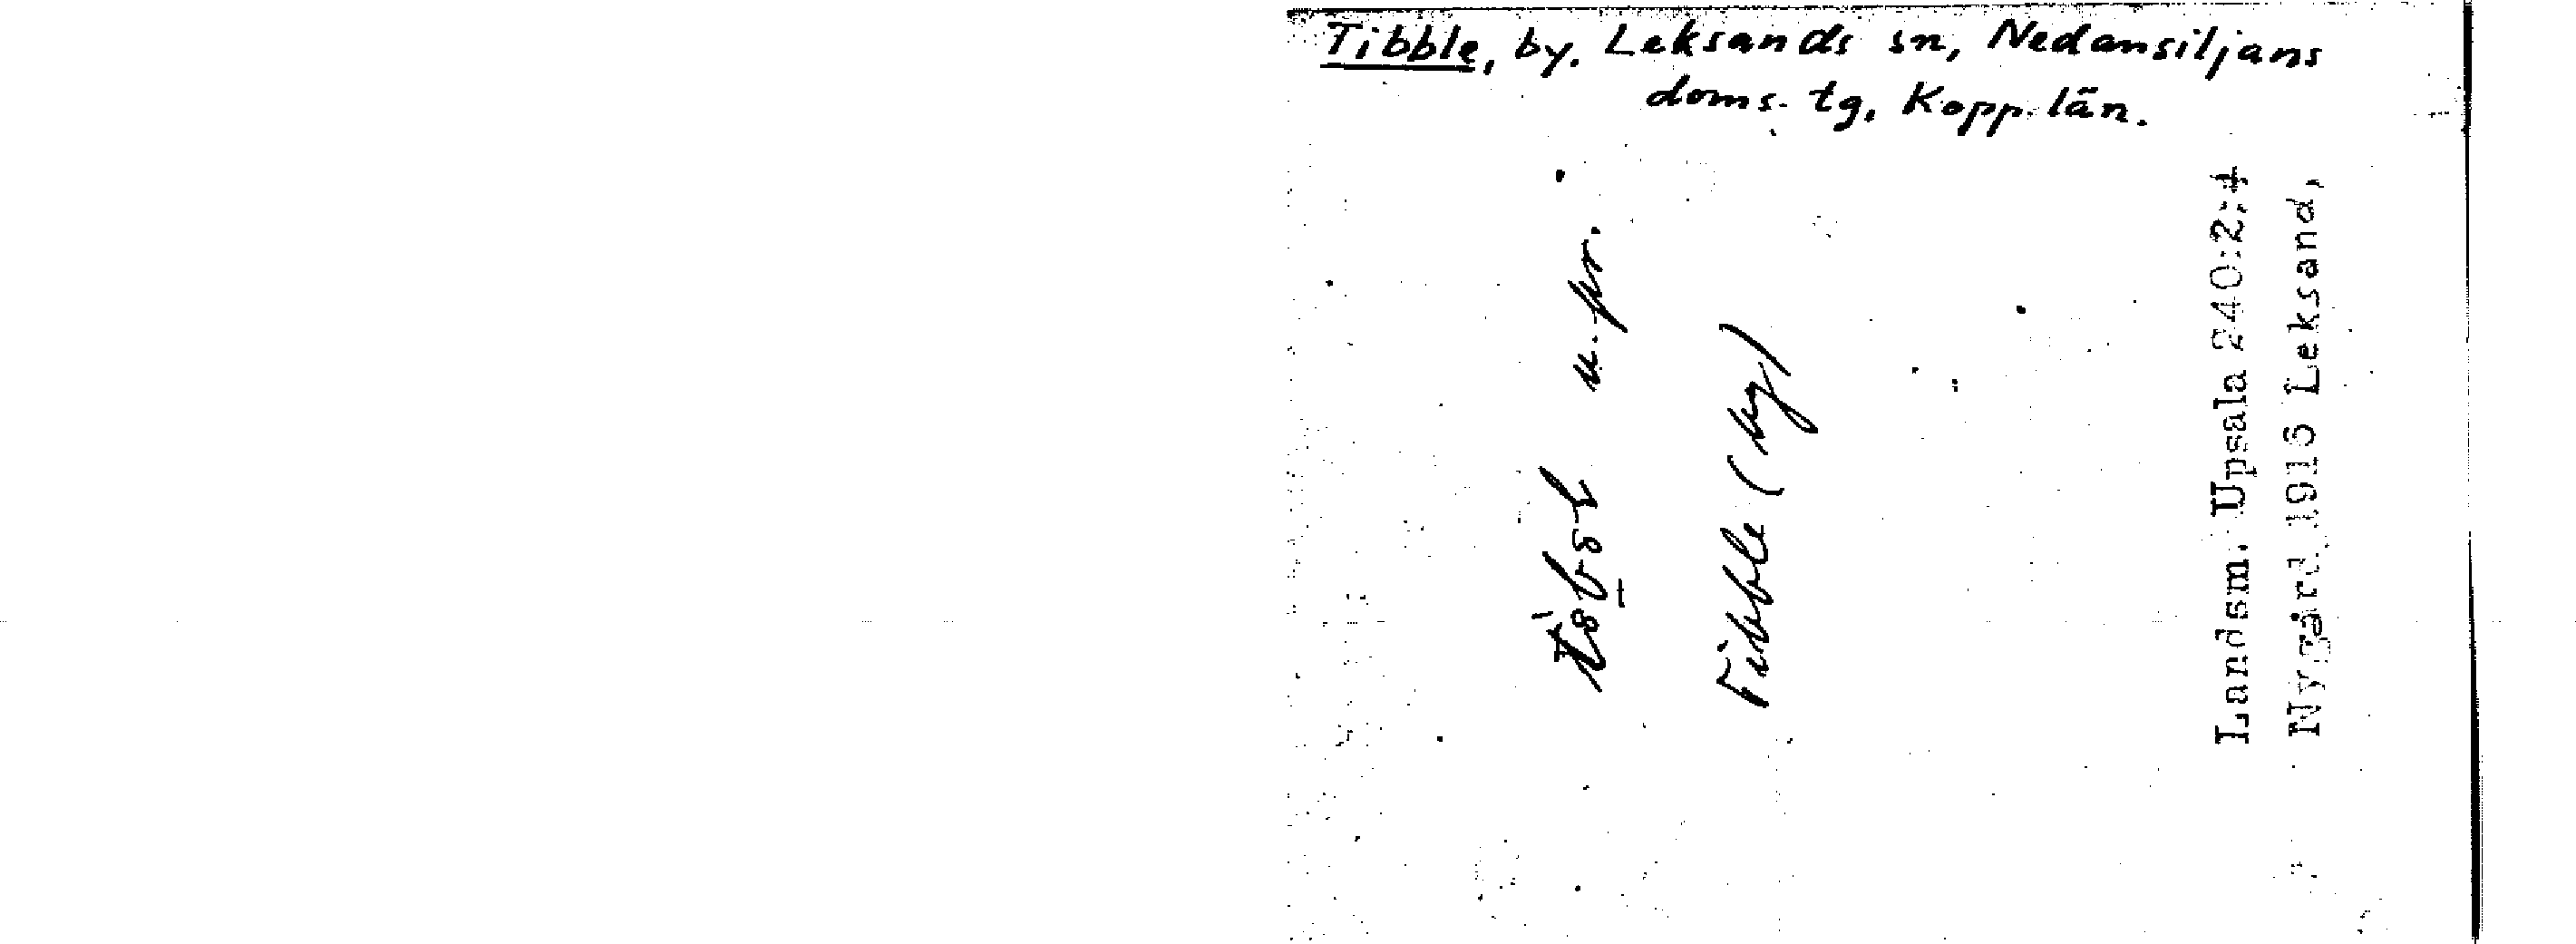 Tibble, by. Leksands sn, Nedansiljans
doms. tg, Kopp. län.
n. pr.
Tibble (by)
Landsm. Upsala 240:2:4
Nygård 1916 Leksand,